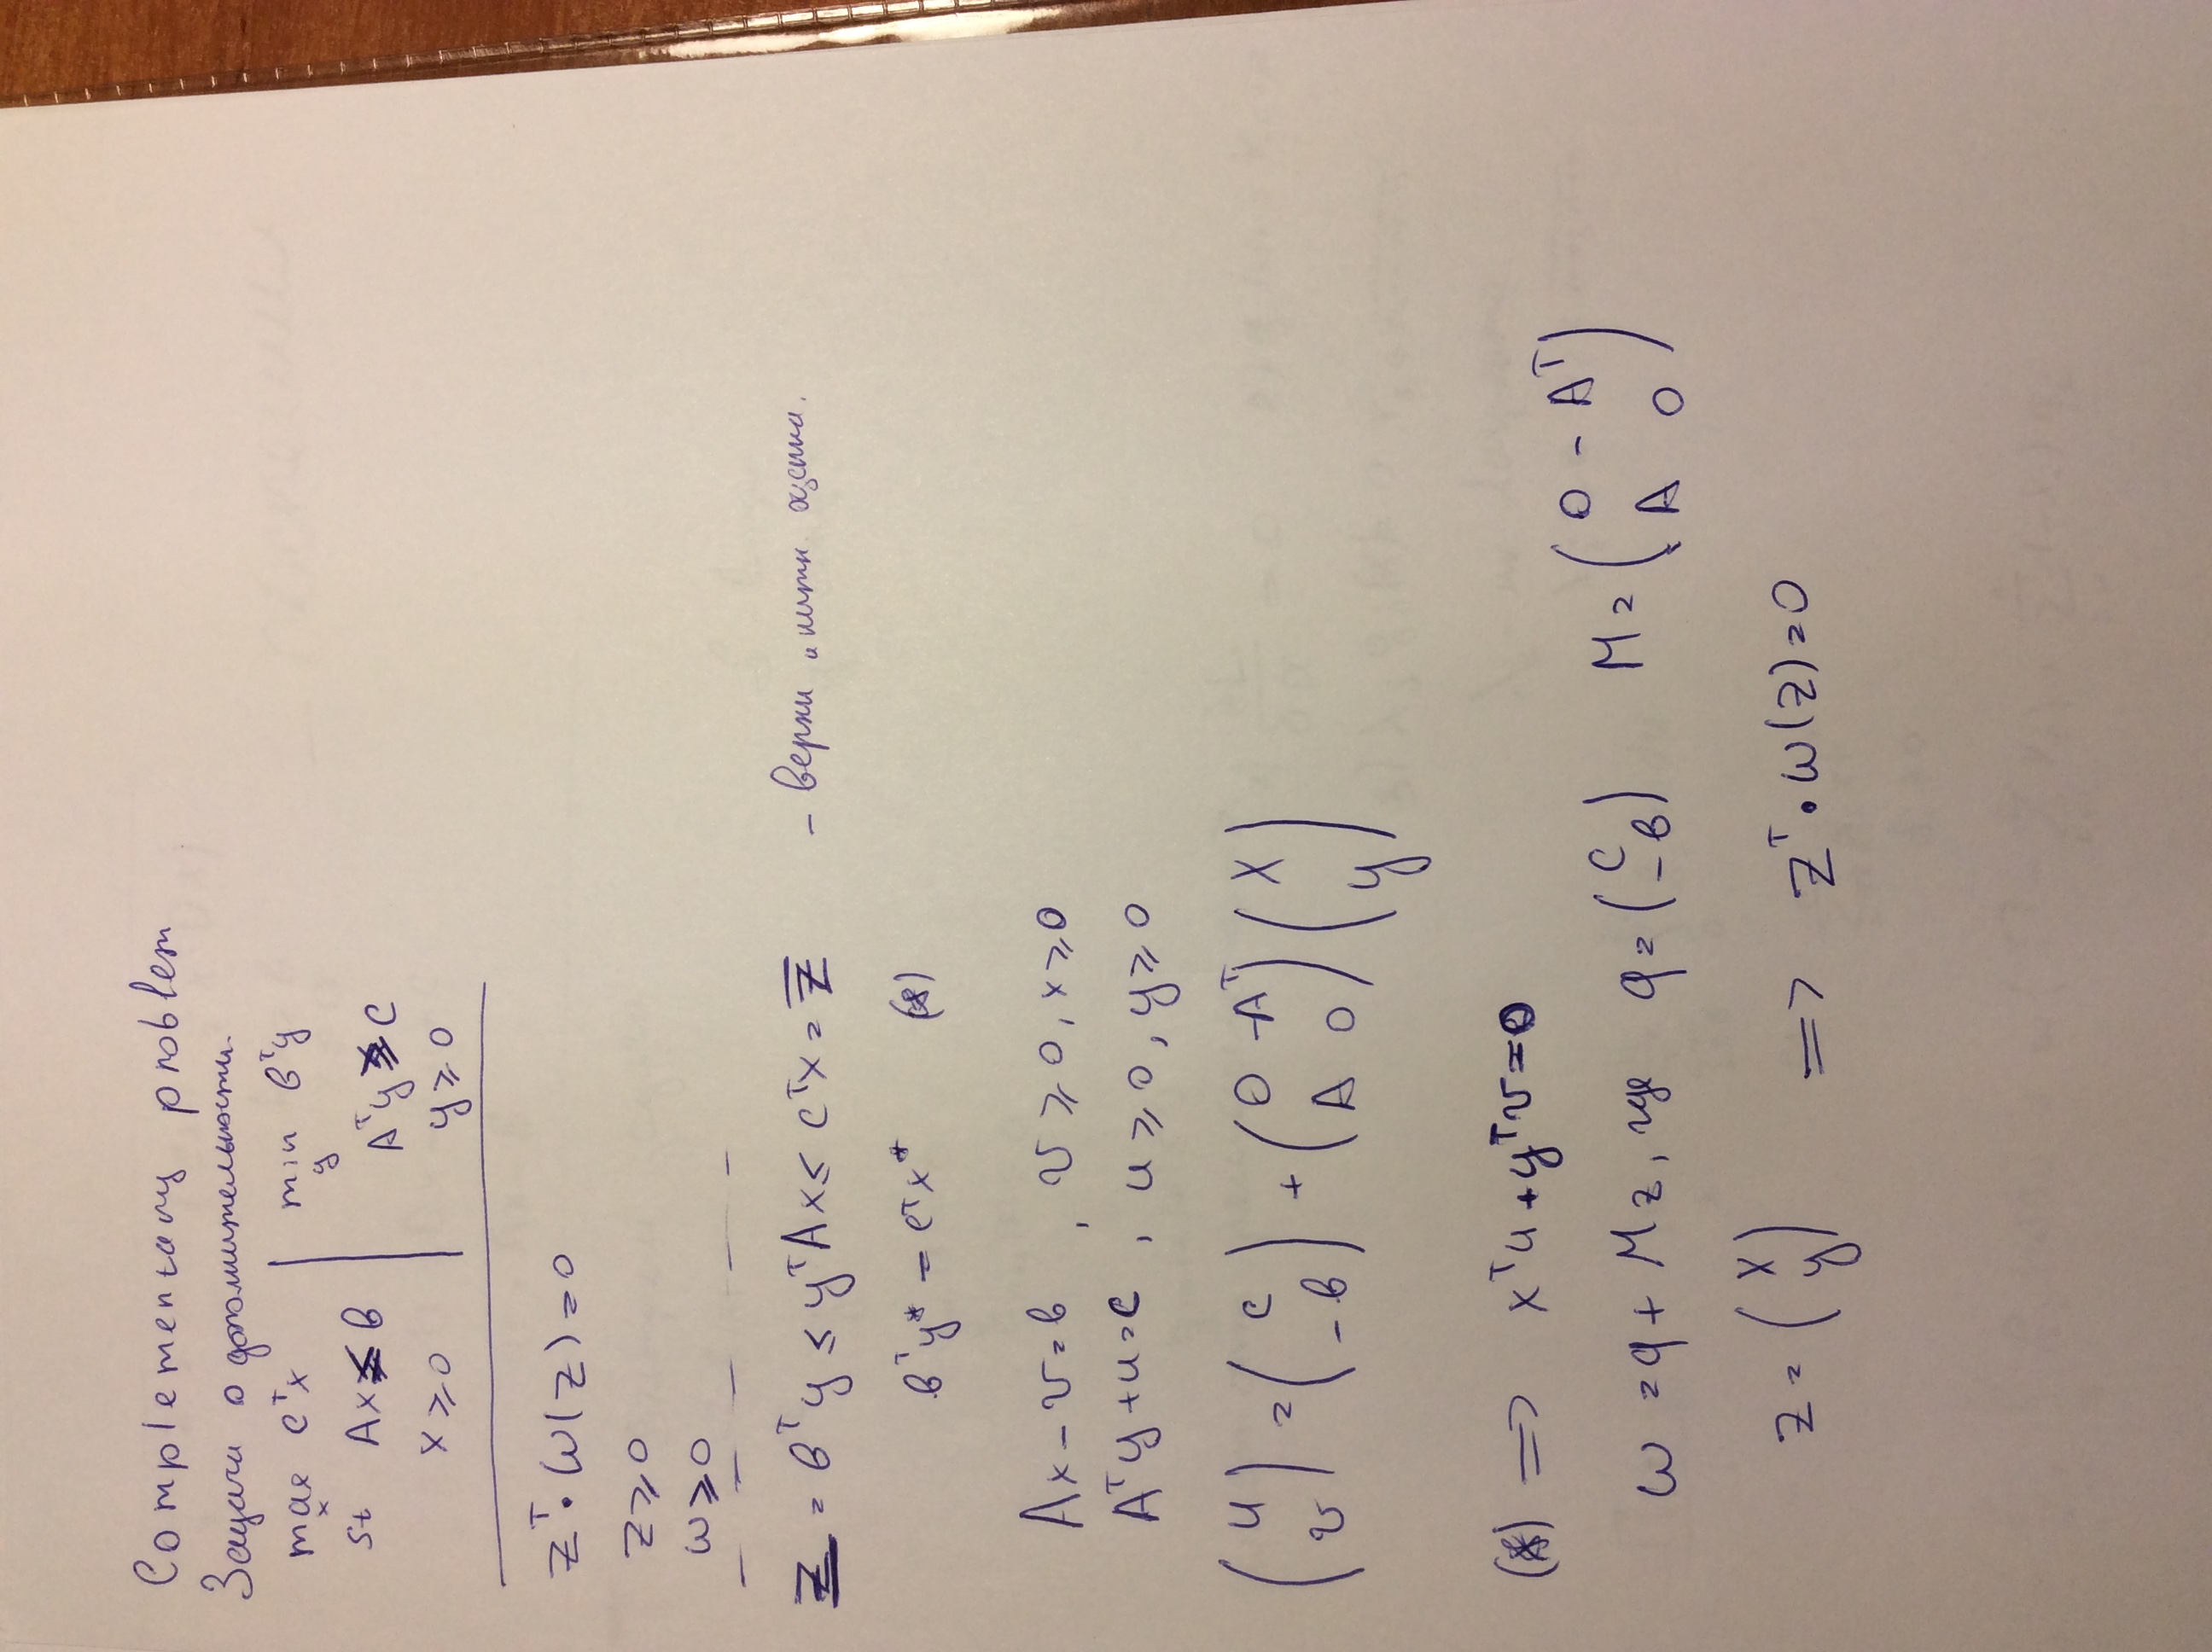 Complementary problem
Задача о дополнительности.
max cᵀx | min вᵀy
x y
st Ax ≤ в | Aᵀy ≥ c
x ≥ 0 | y ≥ 0
zᵀ · ω(z) = 0
z ≥ 0
ω ≥ 0
z̲ = вᵀy ≤ yᵀAx ≤ cᵀx = z̅ – верхн и нижн оценка.
вᵀy* = cᵀx* (*)
Ax − v = в , v ≥ 0, x ≥ 0
Aᵀy + u = c , u ≥ 0, y ≥ 0
(u v) = (c −в) + (0 −Aᵀ A 0) (x y)
(*) ⟹ xᵀu + yᵀv = 0
ω = q + Mz, где q = (c −в) M = (0 −Aᵀ A 0)
z = (x y) ⟹ zᵀ · ω(z) = 0